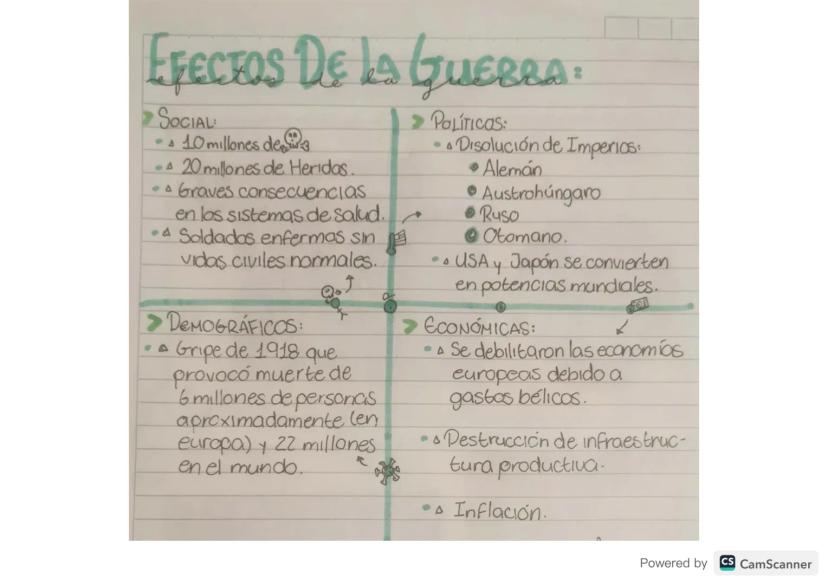 EFECTOS DE LA GUERRA:
efectos de la guerra
SOCIAL:
10 millones de
20 millones de Heridos.
Graves consecuencias
en los sistemas de salud.
Soldados enfermas sin
vidas civiles normales.
POLÍTICAS:
Disolución de Imperios:
Alemán
Austrohúngaro
Ruso
Otomano.
USA y Japón se convierten
en potencias mundiales.
DEMOGRÁFICOS:
Gripe de 1918 que
provocó muerte de
6 millones de personas
aproximadamente (en
europa) y 22 millones
en el mundo.
ECONÓMICAS:
Se debilitaron las economías
europeas debido a
gastos bélicos.
Destrucción de infraestruc-
tura productiva.
Inflación.
Powered by CS CamScanner